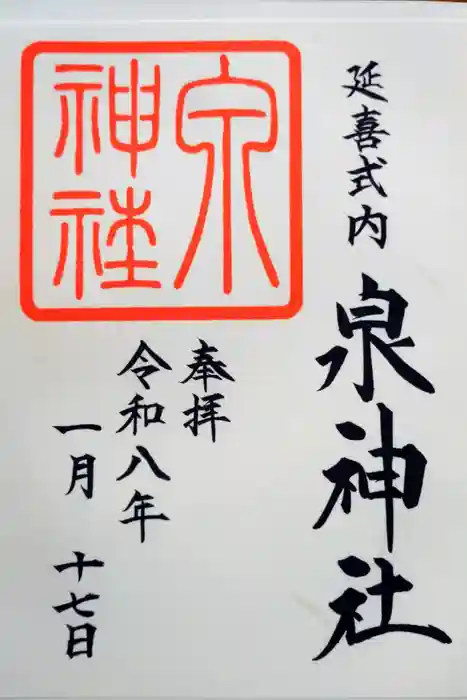 延喜式内
泉神社
奉拝
令和八年
一月 十七日
泉
神社